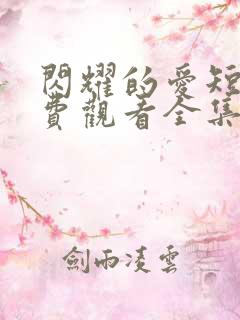 閃耀的愛短
費觀看全集
劍雨凌雲